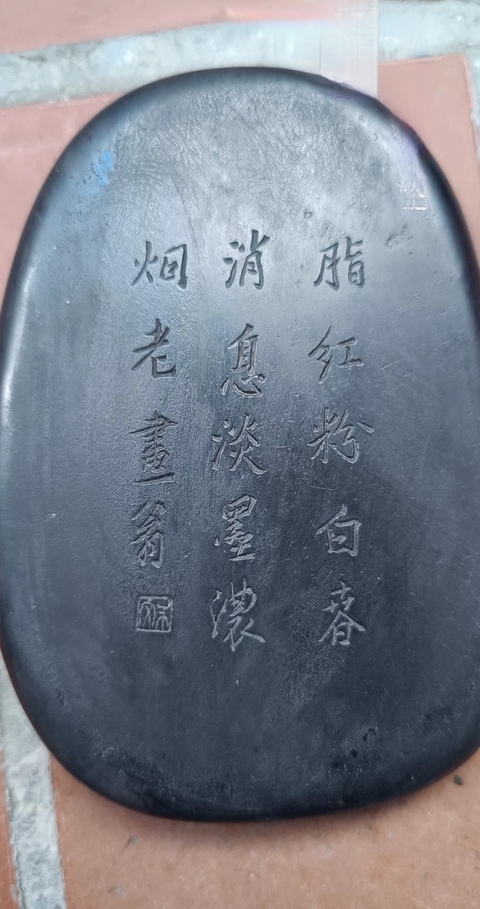 脂红粉白春
消息淡墨濃
烟老畫翁